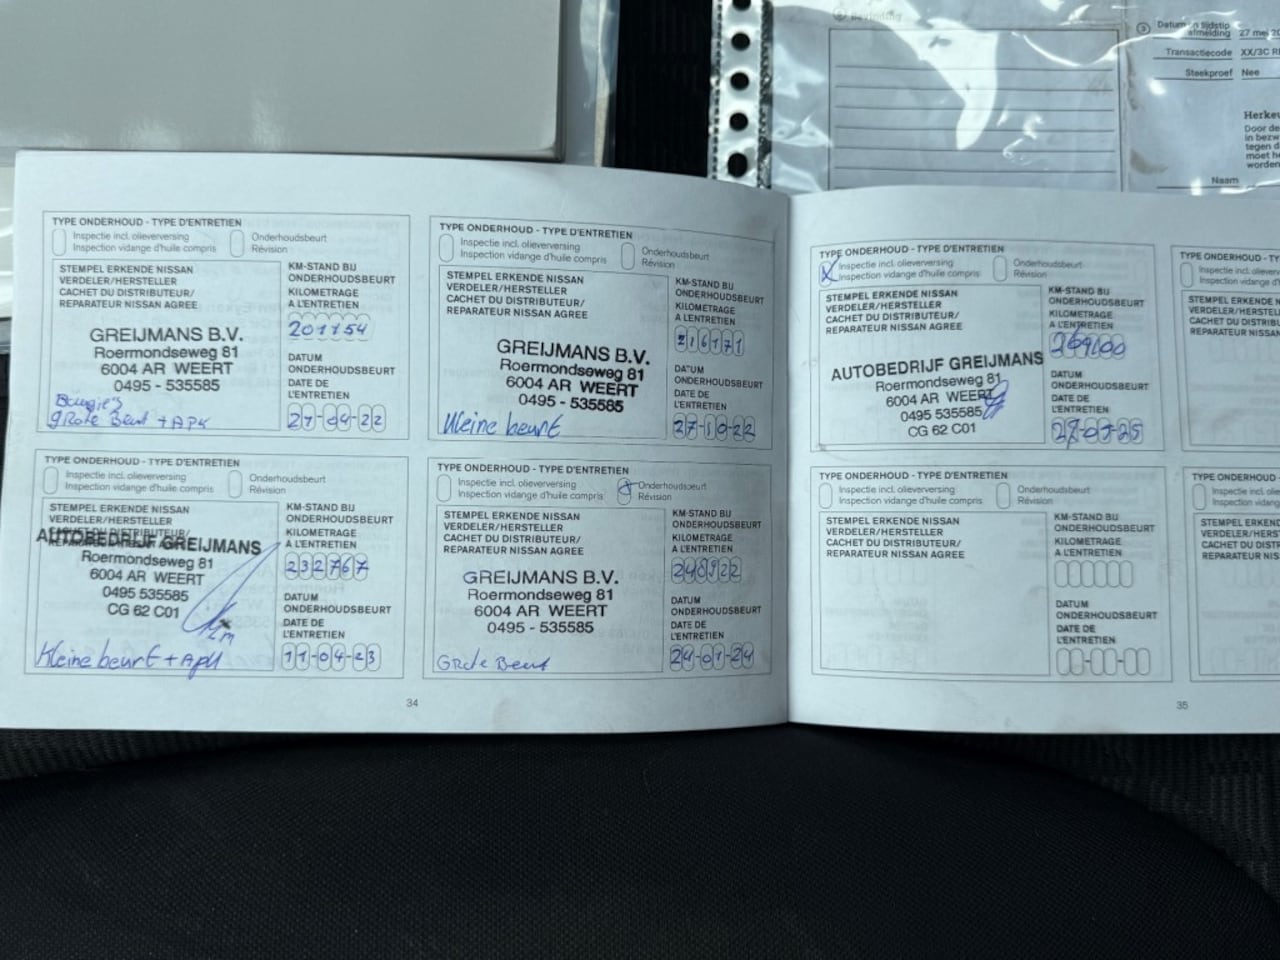 Bevinding
3 Datum en tijdstip
afmelding 27 mei 20
Transactiecode XX/3C R
Steekproef Nee
Herkeu
Door de
in bezw
tegen d
moet he
worden
Naam
TYPE ONDERHOUD - TYPE D'ENTRETIEN
Inspectie incl. olieverversing
Inspection vidange d'huile compris
Onderhoudsbeurt
Révision
STEMPEL ERKENDE NISSAN
VERDELER/HERSTELLER
CACHET DU DISTRIBUTEUR/
REPARATEUR NISSAN AGREE
GREIJMANS B.V.
Roermondseweg 81
6004 AR WEERT
0495 - 535585
Bougie's
grote Beurt + APK
KM-STAND BIJ
ONDERHOUDSBEURT
KILOMETRAGE
A L'ENTRETIEN
201154
DATUM
ONDERHOUDSBEURT
DATE DE
L'ENTRETIEN
21-04-22
TYPE ONDERHOUD - TYPE D'ENTRETIEN
Inspectie incl. olieverversing
Inspection vidange d'huile compris
Onderhoudsbeurt
Révision
STEMPEL ERKENDE NISSAN
VERDELER/HERSTELLER
CACHET DU DISTRIBUTEUR/
REPARATEUR NISSAN AGREE
GREIJMANS B.V.
Roermondseweg 81
6004 AR WEERT
0495 - 535585
Kleine beurt
KM-STAND BIJ
ONDERHOUDSBEURT
KILOMETRAGE
A L'ENTRETIEN
216171
DATUM
ONDERHOUDSBEURT
DATE DE
L'ENTRETIEN
27-10-22
TYPE ONDERHOUD - TYPE D'ENTRETIEN
Inspectie incl. olieverversing
Inspection vidange d'huile compris
Onderhoudsbeurt
Révision
STEMPEL ERKENDE NISSAN
VERDELER/HERSTELLER
CACHET DU DISTRIBUTEUR/
REPARATEUR NISSAN AGREE
AUTOBEDRIJF GREIJMANS
Roermondseweg 81
6004 AR WEERT
0495 535585
CG 62 C01
Kleine beurt + Apk
KM-STAND BIJ
ONDERHOUDSBEURT
KILOMETRAGE
A L'ENTRETIEN
232767
DATUM
ONDERHOUDSBEURT
DATE DE
L'ENTRETIEN
11-04-23
TYPE ONDERHOUD - TYPE D'ENTRETIEN
Inspectie incl. olieverversing
Inspection vidange d'huile compris
Onderhoudsbeurt
Révision
STEMPEL ERKENDE NISSAN
VERDELER/HERSTELLER
CACHET DU DISTRIBUTEUR/
REPARATEUR NISSAN AGREE
GREIJMANS B.V.
Roermondseweg 81
6004 AR WEERT
0495 - 535585
Grote Beurt
KM-STAND BIJ
ONDERHOUDSBEURT
KILOMETRAGE
A L'ENTRETIEN
248922
DATUM
ONDERHOUDSBEURT
DATE DE
L'ENTRETIEN
24-01-24
34
TYPE ONDERHOUD - TYPE D'ENTRETIEN
Inspectie incl. olieverversing
Inspection vidange d'huile compris
Onderhoudsbeurt
Révision
STEMPEL ERKENDE NISSAN
VERDELER/HERSTELLER
CACHET DU DISTRIBUTEUR/
REPARATEUR NISSAN AGREE
AUTOBEDRIJF GREIJMANS
Roermondseweg 81
6004 AR WEERT
0495 535585
CG 62 C01
KM-STAND BIJ
ONDERHOUDSBEURT
KILOMETRAGE
A L'ENTRETIEN
DATUM
ONDERHOUDSBEURT
DATE DE
L'ENTRETIEN
TYPE ONDERHOUD
Inspectie
Inspection
STEMPEL ERKENDE N
VERDELER/HERSTEL
CACHET DU DISTRIBU
REPARATEUR NISSAN
TYPE ONDERHOUD - TYPE D'ENTRETIEN
Inspectie incl. olieverversing
Inspection vidange d'huile compris
Onderhoudsbeurt
Révision
STEMPEL ERKENDE NISSAN
VERDELER/HERSTELLER
CACHET DU DISTRIBUTEUR/
REPARATEUR NISSAN AGREE
KM-STAND BIJ
ONDERHOUDSBEURT
KILOMETRAGE
A L'ENTRETIEN
DATUM
ONDERHOUDSBEURT
DATE DE
L'ENTRETIEN
TYPE ONDERHOUD -
Inspectie inc
Inspection v
STEMPEL ERKENDE
VERDELER/HERSTE
CACHET DU DISTRI
REPARATEUR NISS
35